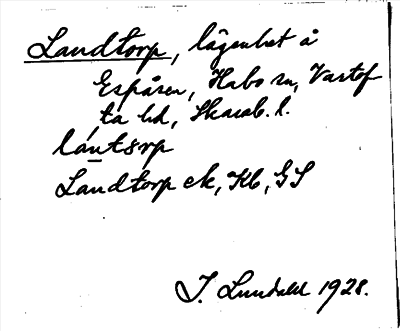 Landtorp, lägenhet å
Espåsen, Habo sn, Vartof
ta hd, Skarab. l.
lántərp
Landtorp ek, Kb, GS
I. Lundahl 1928.